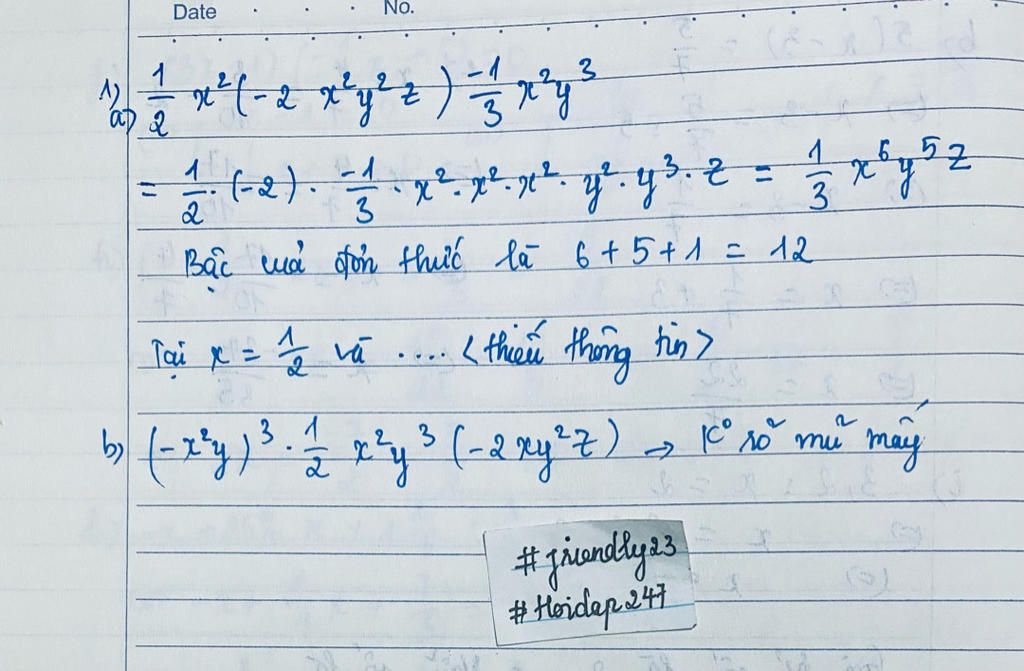 Date . . . No.
1) a) \frac{1}{2} x²(-2 x²y²z) \frac{-1}{3} x²y³
= \frac{1}{2} . (-2) . \frac{-1}{3} . x² . x² . x² . y² . y³ . z = \frac{1}{3} x⁶y⁵z
Bậc của đơn thức là 6 + 5 + 1 = 12
Tại x = \frac{1}{2} và .... <thiếu thông tin>
b) (-x²y)³ . \frac{1}{2} x²y³ (-2xy²z) → K° rõ mũ mấy
#friendly23
#Hoidap247